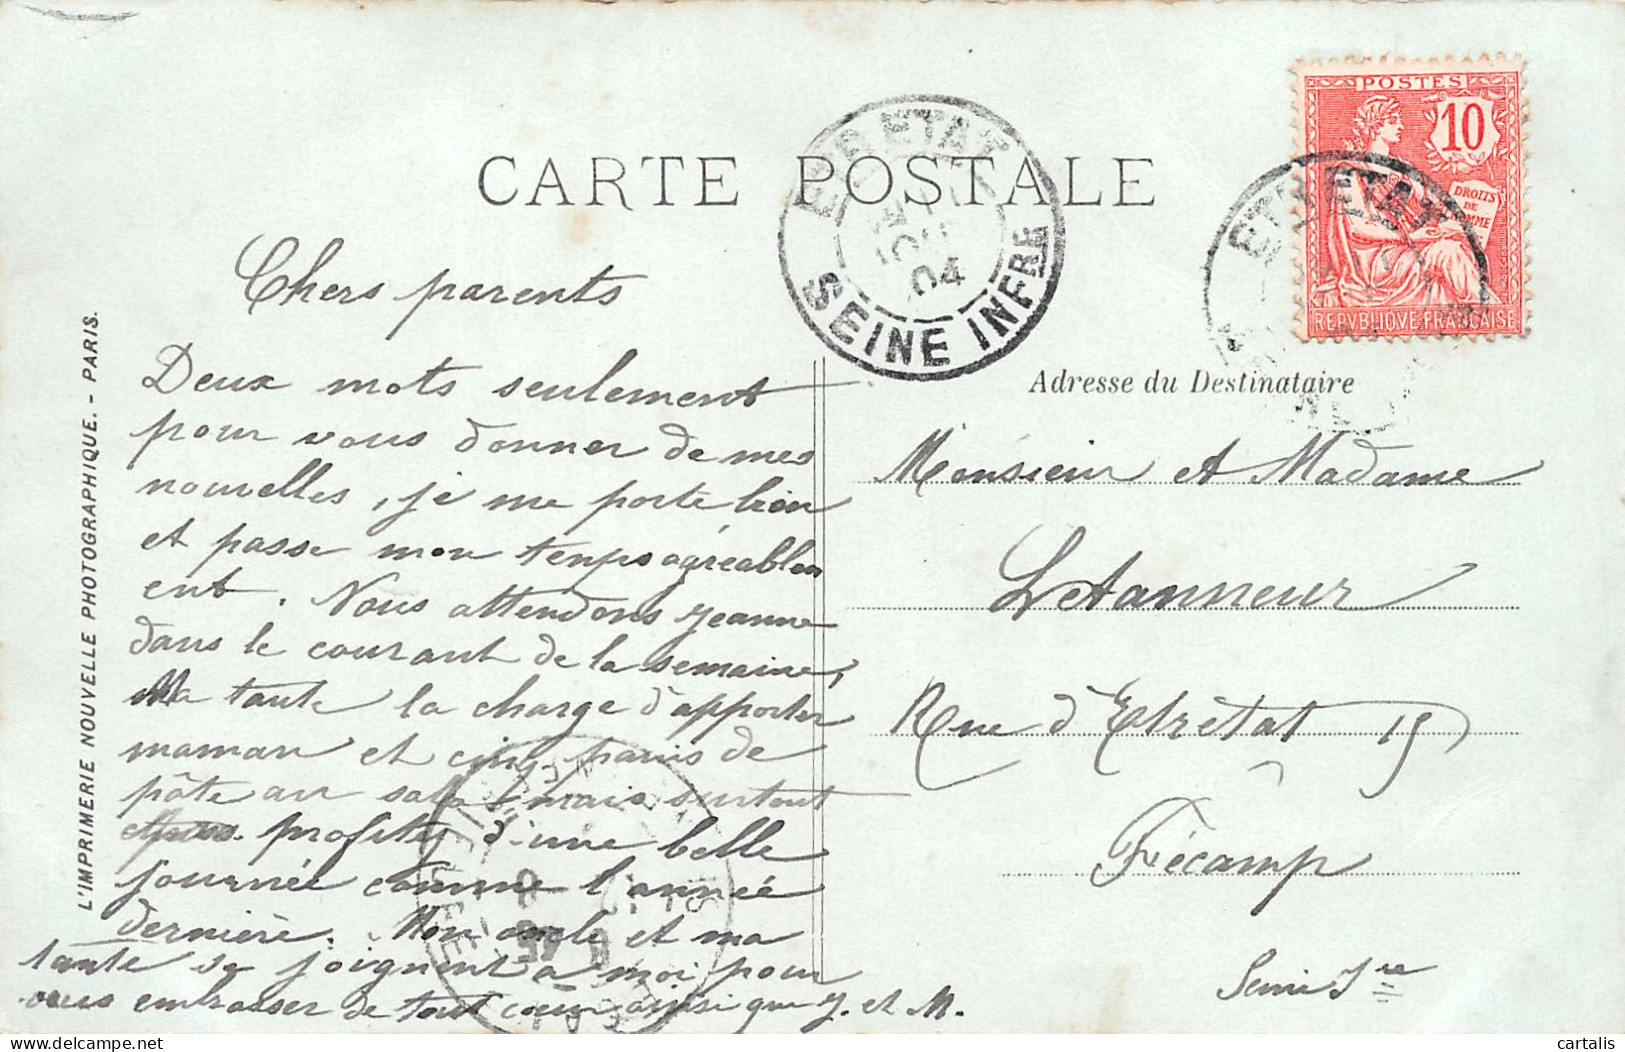 CARTE POSTALE
POSTES
10
DROITS
DE
HOMME
REPVBLIQVE FRANÇAISE
ETRETAT
04
SEINE INFRE
ETRETAT
Chers parents
Deux mots seulement
pour vous donner de mes
nouvelles, je me porte bien
et passe mon temps agréablem
ent. Nous attendons Jeanne
dans le courant de la semaine,
Ma tante la charge d'apporter
maman et cinq pains de
pâte au mais surtout
profitez d'une belle
journée comme l'année
dernière. Mon oncle et ma
tante se joignent a moi pour
vous embrasser de tout cœur ainsi que J. et M.
Adresse du Destinataire
Monsieur et Madame
Letanneur
Rue d'Etrétat 15
Fécamp
Seine Ire
L'IMPRIMERIE NOUVELLE PHOTOGRAPHIQUE. - PARIS.
cartalis